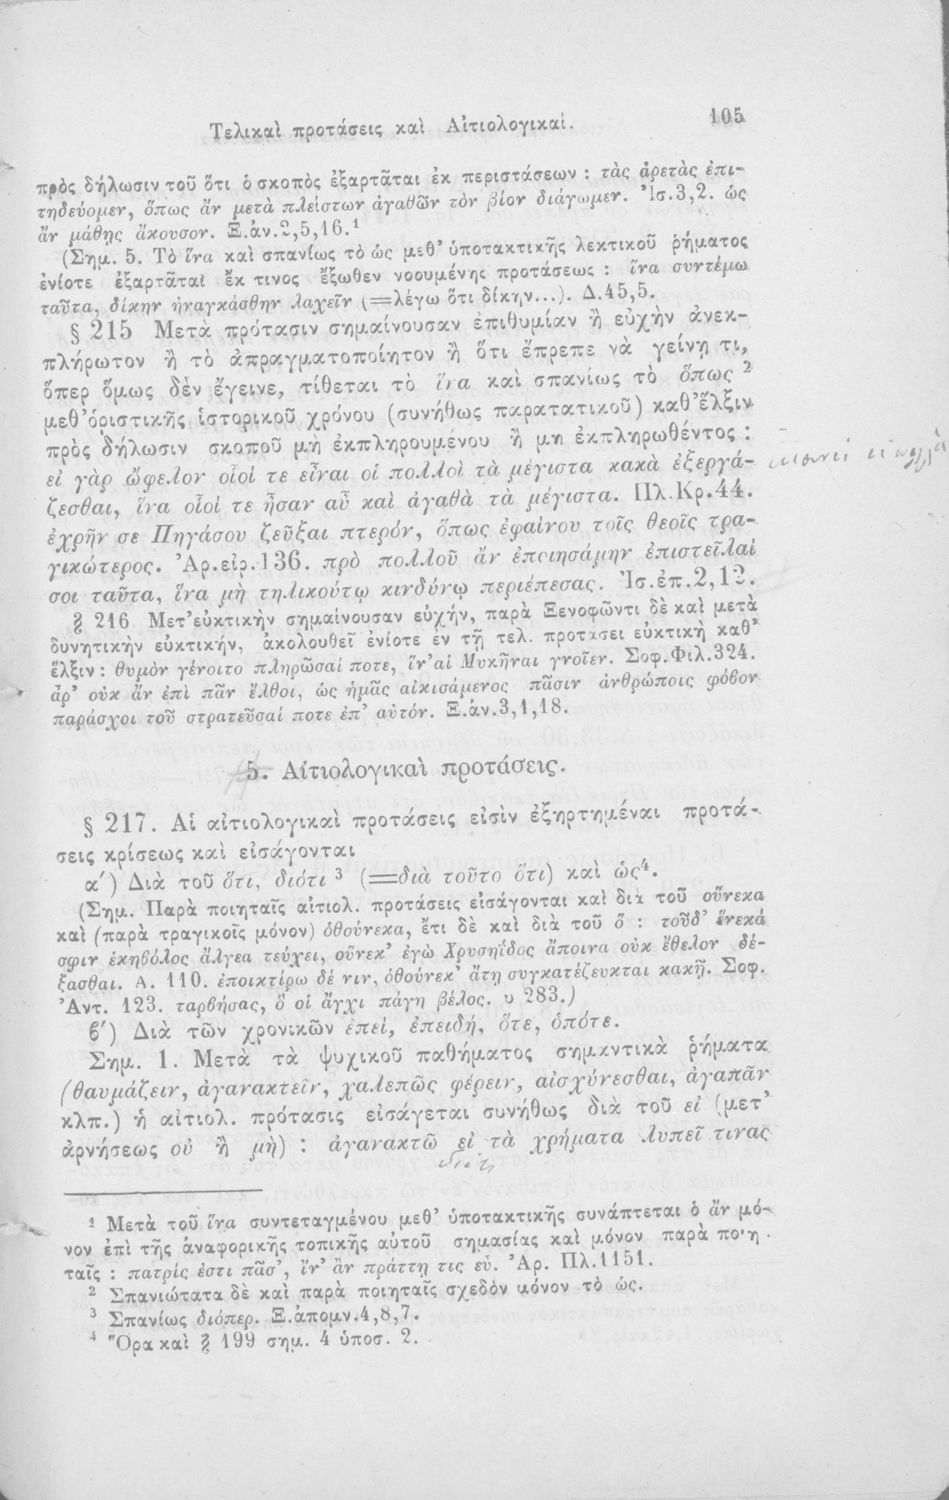 Τελικαὶ προτάσεις καὶ Αἰτιολογικαί. 105
πρὸς δήλωσιν τοῦ ὅτι ὁ σκοπὸς ἐξαρτᾶται ἐκ περιστάσεων : τὰς ἀρετὰς ἐπι-
τηδεύομεν, ὅπως ἂν μετὰ πλείστων ἀγαθῶν τὸν βίον διάγωμεν. Ἰσ.3,2. ὡς
ἂν μάθῃς ἄκουσον. Ξ.ἀν.2,5,16.¹
(Σημ. 5. Τὸ ἵνα καὶ σπανίως τὸ ὡς μεθ’ ὑποτακτικῆς λεκτικοῦ ῥήματος
ἐνίοτε ἐξαρτᾶται ἔκ τινος ἔξωθεν νοουμένης προτάσεως : ἵνα συντέμω
ταῦτα, δίκην ἠναγκάσθην λαχεῖν (=λέγω ὅτι δίκην...). Δ.45,5.
§ 215 Μετὰ πρότασιν σημαίνουσαν ἐπιθυμίαν ἢ εὐχὴν ἀνεκ-
πλήρωτον ἢ τὸ ἀπραγματοποίητον ἢ ὅτι ἔπρεπε νὰ γείνῃ τι,
ὅπερ ὅμως δὲν ἔγεινε, τίθεται τὸ ἵνα καὶ σπανίως τὸ ὅπως ²
μεθ’ὁριστικῆς ἱστορικοῦ χρόνου (συνήθως παρατατικοῦ) καθ’ἕλξιν
πρὸς δήλωσιν σκοποῦ μὴ ἐκπληρουμένου ἢ μη ἐκπληρωθέντος :
εἰ γὰρ ὤφελον οἷοί τε εἶναι οἱ πολλοὶ τὰ μέγιστα κακὰ ἐξεργά-
ζεσθαι, ἵνα οἷοί τε ἦσαν αὖ καὶ ἀγαθὰ τὰ μέγιστα. Πλ.Κρ.44.
ἐχρῆν σε Πηγάσου ζεῦξαι πτερόν, ὅπως ἐφαίνου τοῖς θεοῖς τρα-
γικώτερος. Ἀρ.εἰρ.136. πρὸ πολλοῦ ἂν ἐποιησάμην ἐπιστεῖλαί
σοι ταῦτα, ἵνα μὴ τηλικούτῳ κινδύνῳ περιέπεσας. Ἰσ.ἐπ.2,12.
§ 216 Μετ’εὐκτικὴν σημαίνουσαν εὐχήν, παρὰ Ξενοφῶντι δὲ καὶ μετὰ
δυνητικὴν εὐκτικήν, ἀκολουθεῖ ἐνίοτε ἐν τῇ τελ. προτάσει εὐκτικὴ καθ’
ἕλξιν : θυμὸν γένοιτο πληρῶσαί ποτε, ἵν’αἱ Μυκῆναι γνοῖεν. Σοφ.Φιλ.324.
ἆρ’ οὐκ ἂν ἐπὶ πᾶν ἔλθοι, ὡς ἡμᾶς αἰκισάμενος πᾶσιν ἀνθρώποις φόβον
παράσχοι τοῦ στρατεῦσαί ποτε ἐπ’ αὐτόν. Ξ.ἀν.3,1,18.
5. Αἰτιολογικαὶ προτάσεις.
§ 217. Αἱ αἰτιολογικαὶ προτάσεις εἰσὶν ἐξηρτημέναι προτά-
σεις κρίσεως καὶ εἰσάγονται
α′) Διὰ τοῦ ὅτι, διότι ³ (=διὰ τοῦτο ὅτι) καὶ ὡς⁴.
(Σημ. Παρὰ ποιηταῖς αἰτιολ. προτάσεις εἰσάγονται καὶ διὰ τοῦ οὕνεκα
καὶ (παρὰ τραγικοῖς μόνον) ὁθούνεκα, ἔτι δὲ καὶ διὰ τοῦ ὅ : τοῦδ’ ἕνεκά
σφιν ἑκηβόλος ἄλγεα τεύχει, οὕνεκ’ ἐγὼ Χρυσηΐδος ἄποινα οὐκ ἔθελον δέ-
ξασθαι. Α. 110. ἐποικτίρω δέ νιν, ὁθούνεκ’ ἄτῃ συγκατέζευκται κακῇ. Σοφ.
Ἀντ. 123. ταρβήσας, ὅ οἱ ἄγχι πάγη βέλος. υ 283.)
β′) Διὰ τῶν χρονικῶν ἐπεί, ἐπειδή, ὅτε, ὁπότε.
Σημ. 1. Μετὰ τὰ ψυχικοῦ παθήματος σημαντικὰ ῥήματα
(θαυμάζειν, ἀγανακτεῖν, χαλεπῶς φέρειν, αἰσχύνεσθαι, ἀγαπᾶν
κλπ.) ἡ αἰτιολ. πρότασις εἰσάγεται συνήθως διὰ τοῦ εἰ (μετ’
ἀρνήσεως οὐ ἢ μὴ) : ἀγανακτῶ εἰ τὰ χρήματα λυπεῖ τινας
¹ Μετὰ τοῦ ἵνα συντεταγμένου μεθ’ ὑποτακτικῆς συνάπτεται ὁ ἂν μό-
νον ἐπὶ τῆς ἀναφορικῆς τοπικῆς αὐτοῦ σημασίας καὶ μόνον παρὰ ποιη-
ταῖς : πατρίς ἐστι πᾶσ’, ἵν’ ἂν πράττῃ τις εὖ. Ἀρ. Πλ.1151.
² Σπανιώτατα δὲ καὶ παρὰ ποιηταῖς σχεδὸν μόνον τὸ ὡς.
³ Σπανίως διόπερ. Ξ.ἀπομν.4,8,7.
⁴ Ὅρα καὶ § 199 σημ. 4 ὑποσ. 2.